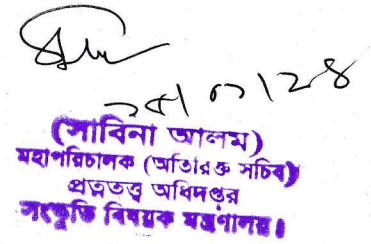 ২৫/০১/২৪
(সাবিনা আলম)
মহাপরিচালক (অতিরিক্ত সচিব)
প্রত্নতত্ত্ব অধিদপ্তর
সংস্কৃতি বিষয়ক মন্ত্রণালয়।